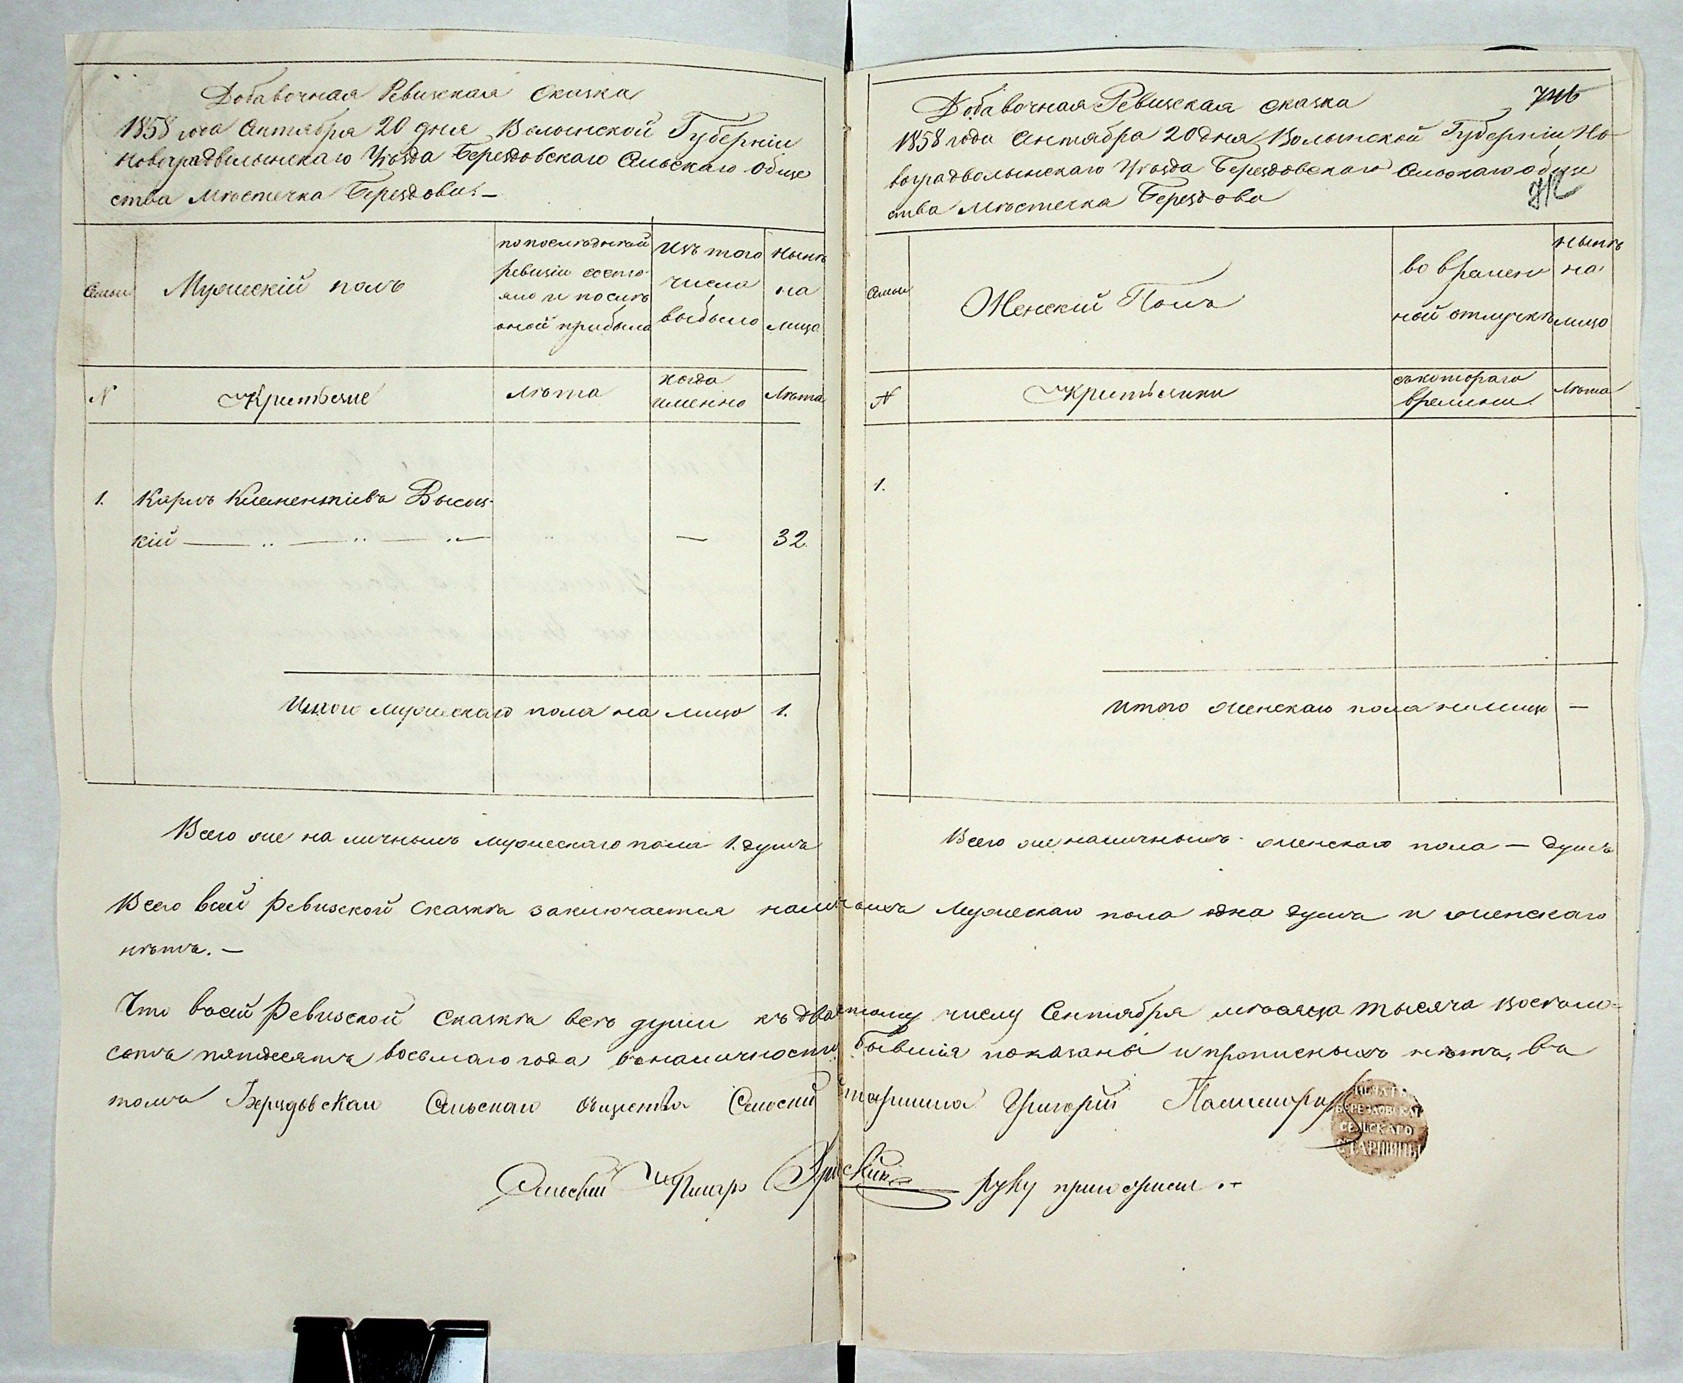 Добавочная Ревизская сказка
1858 года Сентября 20 дня Волынской Губерніи
Новоградволынскаго Уѣзда Берездовскаго Сельскаго Обще
ства Мѣстечка Берездова. —
Семьи
Мужескій полъ
по послѣдней ревизіи состо яло и послѣ оной прибыло
Изъ того числа выбыло
Нынѣ на лицо
N
Крестьяне
Лѣта
Когда именно
Лѣта
1. Карлъ Климентіевъ Высоц-
кій — — — 32
Итого мужескаго пола на лицо 1.
Всего же на личнымъ мужескаго пола 1. душъ
Добавочная Ревизская сказка
1858 года Сентября 20 дня Волынской Губерніи Но-
воградволынскаго Уѣзда Берездовскаго Сельскаго обще
ства Мѣстечка Берездова
Семьи
Женскій Полъ
во времен ной отлучкѣ
Нынѣ на лицо
N
Крестьянки
съ котораго времени
Лѣта
1.
Итого женскаго пола налицо —
Всего же наличнымъ женскаго пола — душъ
Всего всей Ревизской сказкѣ заключается наличныхъ Мужескаго пола одна душа и женскаго
нѣтъ. —
Что въ сей Ревизской сказкѣ всѣ души къ двадцатому числу Сентября мѣсяца тысяча восьмо-
сотъ пятьдесятъ восьмаго года въ наличности бывшія показаны и прописныхъ нѣтъ, въ
томъ Берездовскаго Сельскаго Общества Сельскій старшина Григорій
БЕРЕЗДОВСКАГО
СЕЛЬСКАГО
СТАРШИНЫ
Сельскій Писарь руку приложилъ